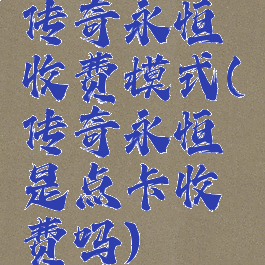 传奇永恒
收费模式(
传奇永恒
是点卡收
费吗)